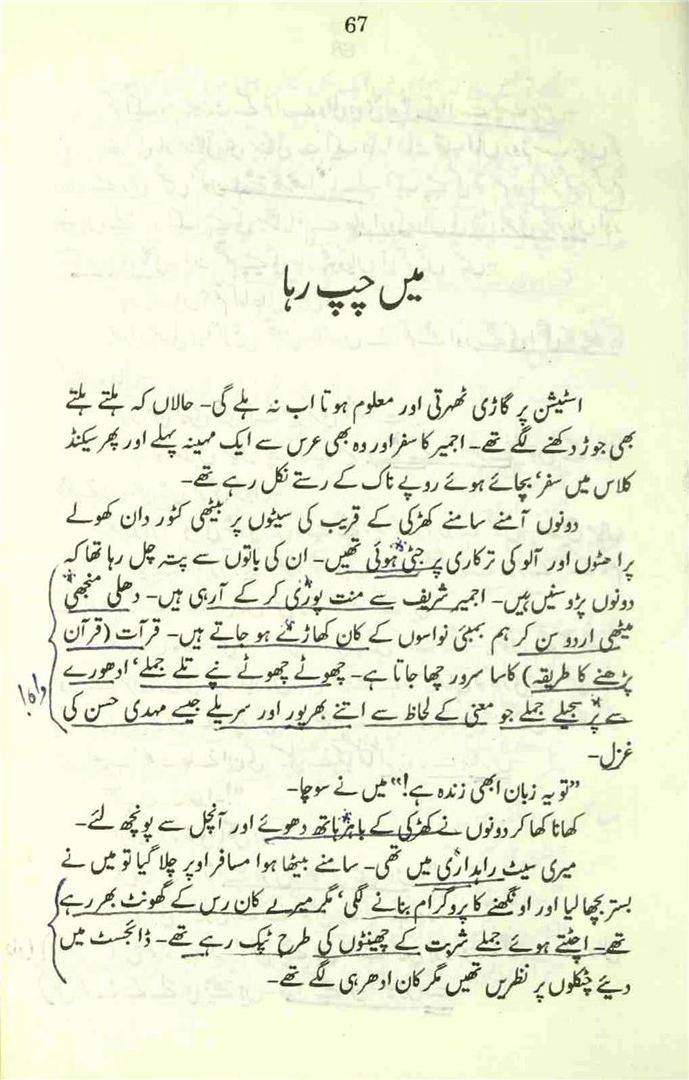 67
میں چپ رہا
اسٹیشن پر گاڑی ٹھہرتی اور معلوم ہوتا اب نہ ہلے گی۔ حالاں کہ ہلتے ہلتے
بھی جوڑ دکھنے لگے تھے۔ اجمیر کا سفر اور وہ بھی عرس سے ایک مہینہ پہلے اور پھر سیکنڈ
کلاس میں سفر‘ بچائے ہوئے روپے ناک کے رستے نکل رہے تھے۔
دونوں آمنے سامنے کھڑکی کے قریب کی سیٹوں پر بیٹھی کٹور دان کھولے
پراٹھوں اور آلو کی ترکاری پر جٹی ہوئی تھیں۔ ان کی باتوں سے پتہ چل رہا تھا کہ
دونوں پڑوسنیں ہیں۔ اجمیر شریف سے منت پوری کر کے آرہی ہیں۔ دھلی منجھی
میٹھی اردو سن کر ہم بمبئی نواسوں کے کان کھاڑے ہو جاتے ہیں۔ قرآت (قرآن
پڑھنے کا طریقہ) کا سا سرور چھا جاتا ہے۔ چھوٹے چھوٹے نپے تلے جملے‘ ادھورے
سے پر سجیلے جملے جو معنی کے لحاظ سے اتنے بھرپور اور سریلے جیسے مہدی حسن کی
غزل۔
واہ!
”تو یہ زبان ابھی زندہ ہے!“ میں نے سوچا۔
کھانا کھا کر دونوں نے کھڑکی کے باہر ہاتھ دھوئے اور آنچل سے پونچھ لئے۔
میری سیٹ راہداری میں تھی۔ سامنے بیٹھا ہوا مسافر اوپر چلا گیا تو میں نے
بستر بچھا لیا اور اونگھنے کا پروگرام بنانے لگی‘ مگر میرے کان رس کے گھونٹ بھر رہے
تھے۔ اچٹتے ہوئے جملے شربت کے چھینٹوں کی طرح ٹپک رہے تھے۔ ڈائجسٹ میں
دیئے چٹکلوں پر نظریں تھیں مگر کان ادھر ہی لگے تھے۔